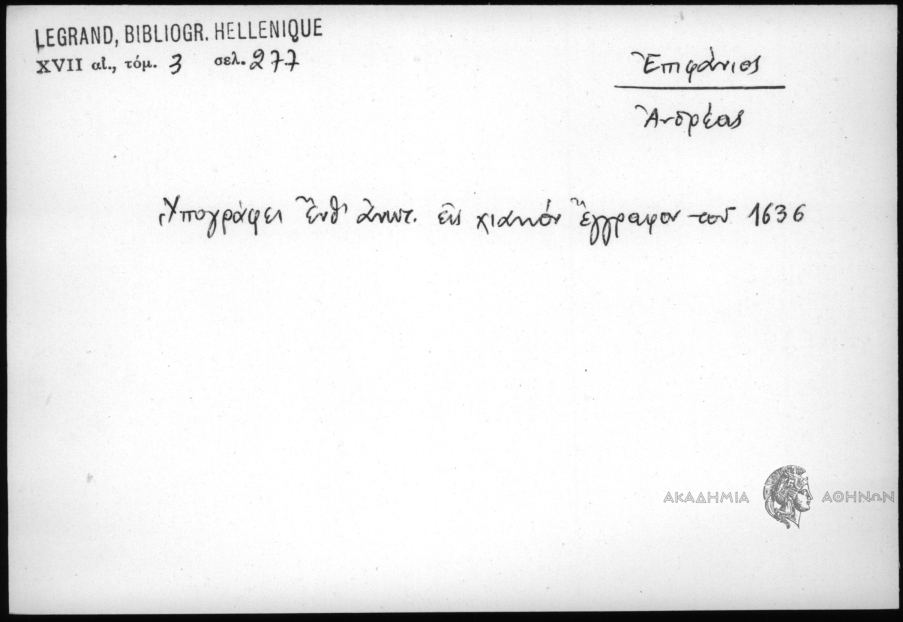 LEGRAND, BIBLIOGR. HELLENIQUE
XVII αἰ., τόμ. 3 σελ. 277
Ἐπιφάνιος
Ἀνδρέας
Ὑπογράφει ἔνθ' ἀνωτ. εἰς χιακόν ἔγγραφον τοῦ 1636
ΑΚΑΔΗΜΙΑ ΑΘΗΝΩΝ